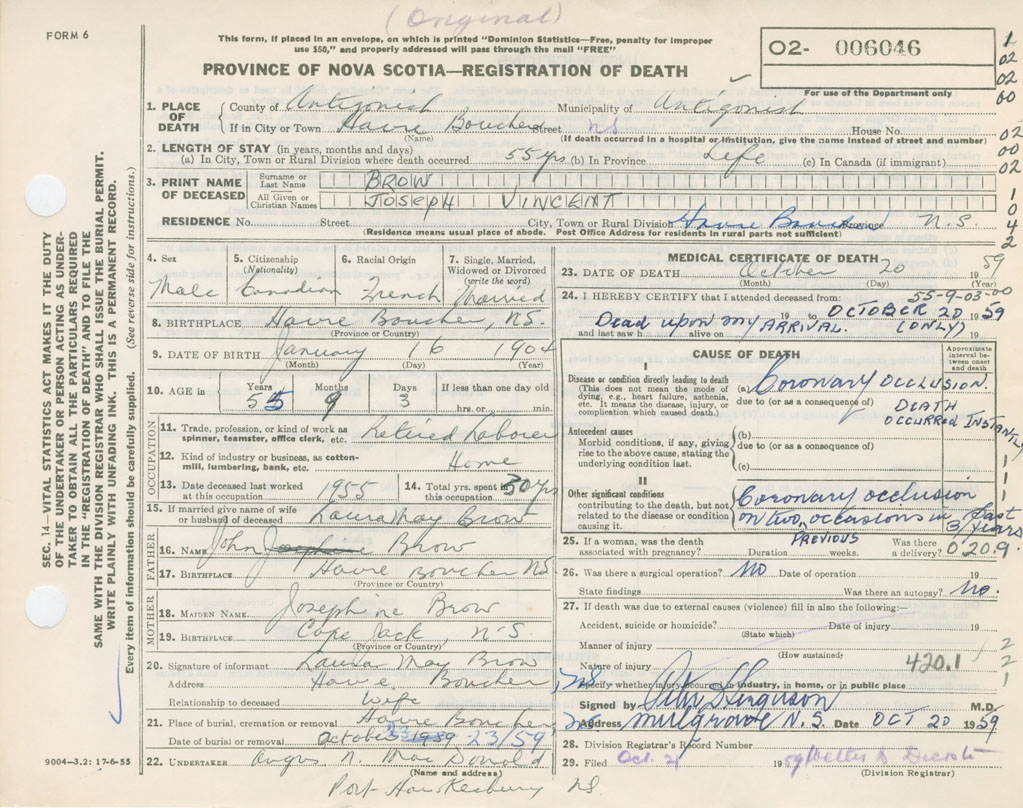 (Original)
FORM 6
This form, if placed in an envelope, on which is printed "Dominion Statistics—Free, penalty for improper
use $50," and properly addressed will pass through the mail "FREE"
PROVINCE OF NOVA SCOTIA—REGISTRATION OF DEATH
O2- 006046
For use of the Department only
1
02
02
00
02
00
02
1
0
4
2
SEC. 14—VITAL STATISTICS ACT MAKES IT THE DUTY
OF THE UNDERTAKER OR PERSON ACTING AS UNDER-
TAKER TO OBTAIN ALL THE PARTICULARS REQUIRED
IN THE "REGISTRATION OF DEATH" AND TO FILE THE
SAME WITH THE DIVISION REGISTRAR WHO SHALL ISSUE THE BURIAL PERMIT.
WRITE PLAINLY WITH UNFADING INK. THIS IS A PERMANENT RECORD.
Every item of information should be carefully supplied. (See reverse side for instructions.)
1. PLACE OF DEATH County of Antigonish Municipality of Antigonish
If in City or Town Havre Boucher Street NS House No.
(Name) (If death occurred in a hospital or institution, give the name instead of street and number)
2. LENGTH OF STAY (in years, months and days)
(a) In City, Town or Rural Division where death occurred 55 yrs (b) In Province Life (c) In Canada (if immigrant)
3. PRINT NAME OF DECEASED Surname or Last Name BROW
All Given or Christian Names JOSEPH VINCENT
RESIDENCE No. Street City, Town or Rural Division Havre Boucher Province N.S.
(Residence means usual place of abode. Post Office Address for residents in rural parts not sufficient)
4. Sex Male
5. Citizenship (Nationality) Canadian
6. Racial Origin French
7. Single, Married, Widowed or Divorced (write the word) Married
8. BIRTHPLACE Havre Boucher, N.S.
(Province or Country)
9. DATE OF BIRTH January 16 1904
(Month) (Day) (Year)
10. AGE in Years 55 Months 9 Days 3 If less than one day old hrs. or min.
OCCUPATION
11. Trade, profession, or kind of work as spinner, teamster, office clerk, etc. Retired Laborer
12. Kind of industry or business, as cotton-mill, lumbering, bank, etc. Home
13. Date deceased last worked at this occupation 1955
14. Total yrs. spent in this occupation 30 yrs
15. If married give name of wife or husband of deceased Laura May Brow
FATHER
16. NAME John Brow
17. BIRTHPLACE Havre Boucher N.S.
(Province or Country)
MOTHER
18. MAIDEN NAME Josephine Brow
19. BIRTHPLACE Cape Jack, N.S.
(Province or Country)
20. Signature of informant Laura May Brow
Address Havre Boucher, N.S.
Relationship to deceased Wife
21. Place of burial, cremation or removal Havre Boucher, N.S.
Date of burial or removal October 23/59
22. UNDERTAKER Angus N. MacDonald
(Name and address)
Port Hawkesbury NS.
9004—3.2: 17-6-55
MEDICAL CERTIFICATE OF DEATH
23. DATE OF DEATH October 20 1959
(Month) (Day) (Year)
55-9-03-00
24. I HEREBY CERTIFY that I attended deceased from:
19 to OCTOBER 20 1959
Dead upon my ARRIVAL. (ONLY)
and last saw h alive on 19
CAUSE OF DEATH
Approximate interval between onset and death
I
Disease or condition directly leading to death
(This does not mean the mode of dying, e.g., heart failure, asthenia, etc. It means the disease, injury, or complication which caused death.)
(a) Coronary OCCLUSION.
due to (or as a consequence of)
DEATH
OCCURRED INSTANTLY
Antecedent causes
Morbid conditions, if any, giving rise to the above cause, stating the underlying condition last.
(b)
due to (or as a consequence of)
(c)
II
Other significant conditions
contributing to the death, but not related to the disease or condition causing it.
Coronary occlusion
on two PREVIOUS occasions in past
3 years
25. If a woman, was the death associated with pregnancy? Duration weeks. Was there a delivery? 0209
26. Was there a surgical operation? NO Date of operation 19
State findings Was there an autopsy? No.
27. If death was due to external causes (violence) fill in also the following:—
Accident, suicide or homicide? Date of injury 19
(State which)
Manner of injury
(How sustained)
Nature of injury 420.1
Specify whether injury occurred in industry, in home, or in public place
Signed by M.D.
Address Mulgrave N.S. Date OCT 20 1959
28. Division Registrar's Record Number
29. Filed Oct. 21 1959
(Division Registrar)